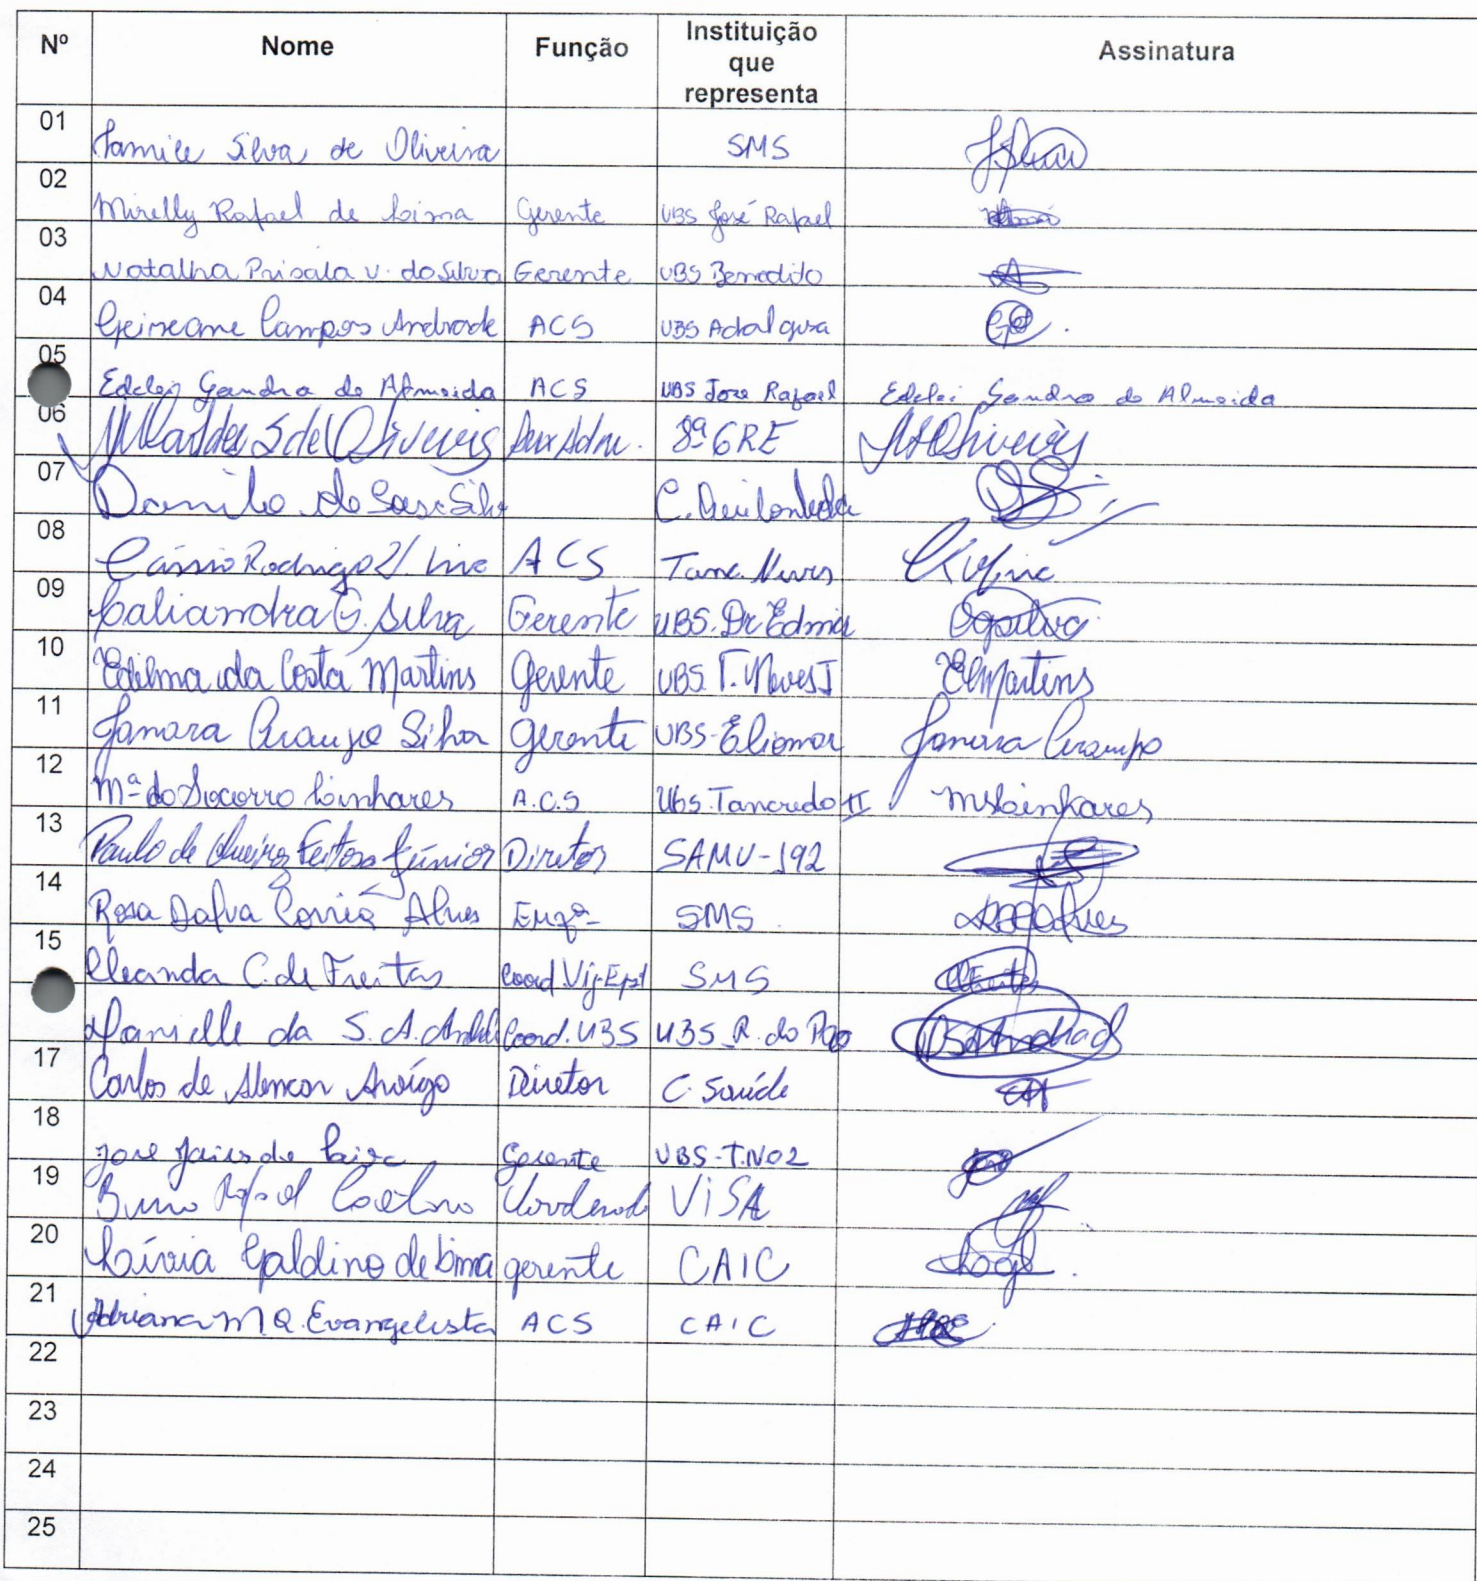 Nº Nome Função Instituição que representa Assinatura
01 Jamile Silva de Oliveira SMS
02 Mirelly Rafael de Lima Gerente UBS José Rafael
03 Natalha Priscila V. da Silva Gerente UBS Benedito
04 Geireane Campos Andrade ACS UBS Adalgisa
05 Edclei Gandra de Almeida ACS UBS Jose Rafael Edclei Gandra de Almeida
06 S de Oliveira Aux Adm. 8ª GRE
07 Danilo de Silva C.
08 Cássio Rodrigo Lira ACS Tanc. Neves
09 Caliandra G. Silva Gerente UBS. Dr Edmir
10 Edilma da Costa Martins Gerente UBS T. Neves I Martins
11 Janara Araujo Silva gerente UBS-Eliomar Janara Araujo
12 Mª do Socorro Linhares A.C.S Ubs. Tancredo II MSLinhares
13 Paulo de Queiroz Feitosa Júnior Diretor SAMU-192
14 Rosa Dalva Correia Alves Enfª SMS
15 Cleanda C. de Freitas Coord. Vig. SMS
Danielle da S. A. Coord. UBS UBS R. do DSAndrade
17 Carlos de Alencar Diretor C. Saúde
18 José de Gerente UBS-T.NO2
19 Rafael VISA
20 Lívia Galdino de Lima gerente CAIC
21 Adriana M. Q. Evangelista ACS CAIC
22
23
24
25